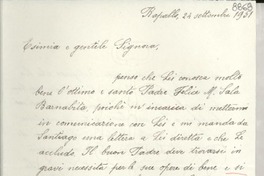 8868
Rapallo, 24 settembre 1951
Esimia e gentile Signora,
penso che Lei conosca molto
bene l'ottimo e santo Padre Felice M. Sala
Barnabita, poichè m'incarica di mettermi
in comunicazione con Lei e mi manda da
Santiago una lettera a Lei diretta e che Le
accludo. Il buon Padre deve trovarsi in
gravi necessità per le sue opere di bene e si